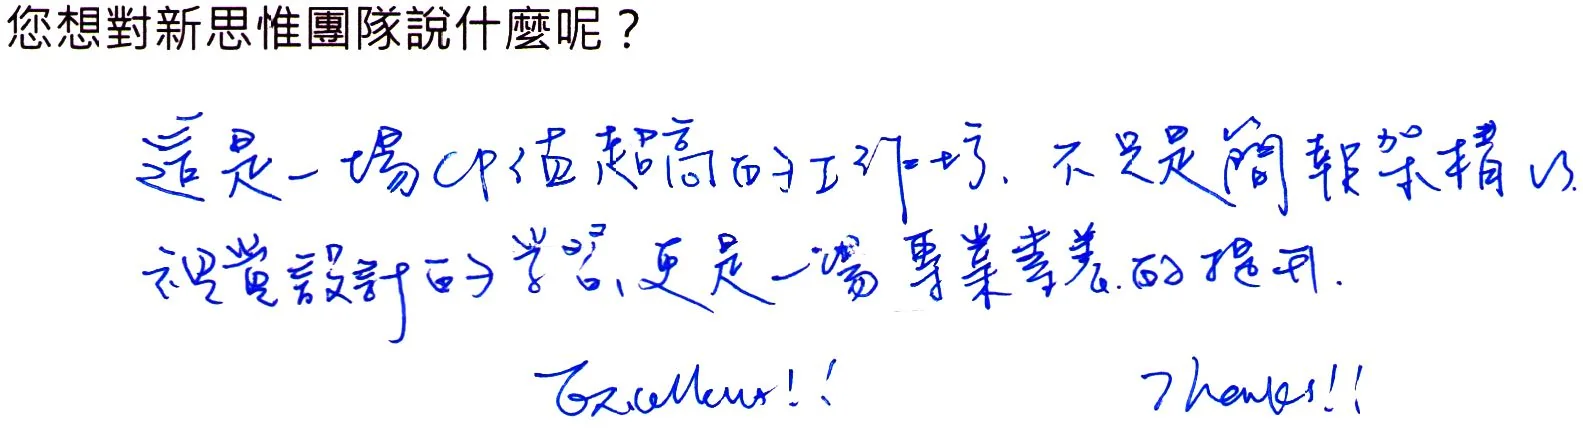 您想對新思惟團隊說什麼呢？
這是一場CP值超高的工作坊. 不只是簡報架構
視覺設計的學習, 更是一場專業素養的提升.
Excellent!! Thanks!!